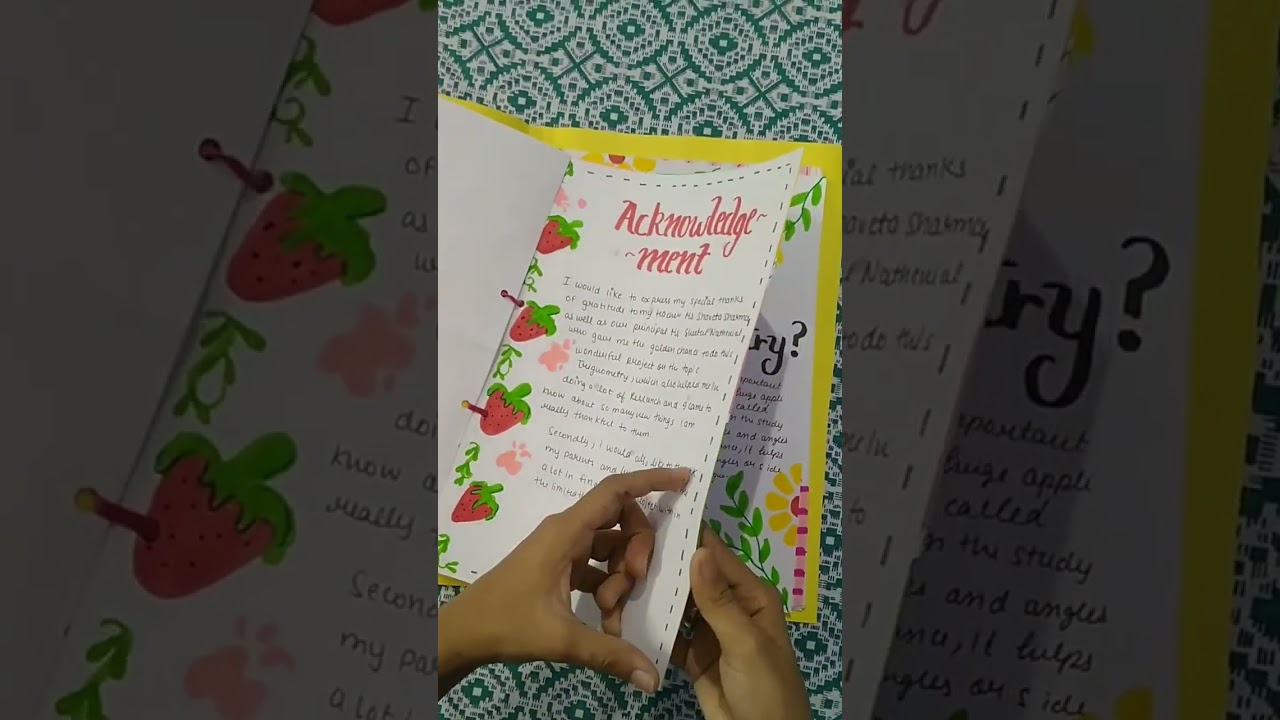 Acknowledge-
-ment
I would like to express my special thanks
of gratitude to my Ms Shaveta Sharma,
as well as our principal Ms Nathewal
who gave me the golden chance to do this
wonderful project on the topic
Trigonometry, which also helped me in
doing a lot of Research and I came to
know about so many new things I am
really thankful to them.
Secondly, I would also like to thank
my parents and
a lot in
the limited within
try?
important
huge appl
called
the study
and angles
it helps
ngles or side